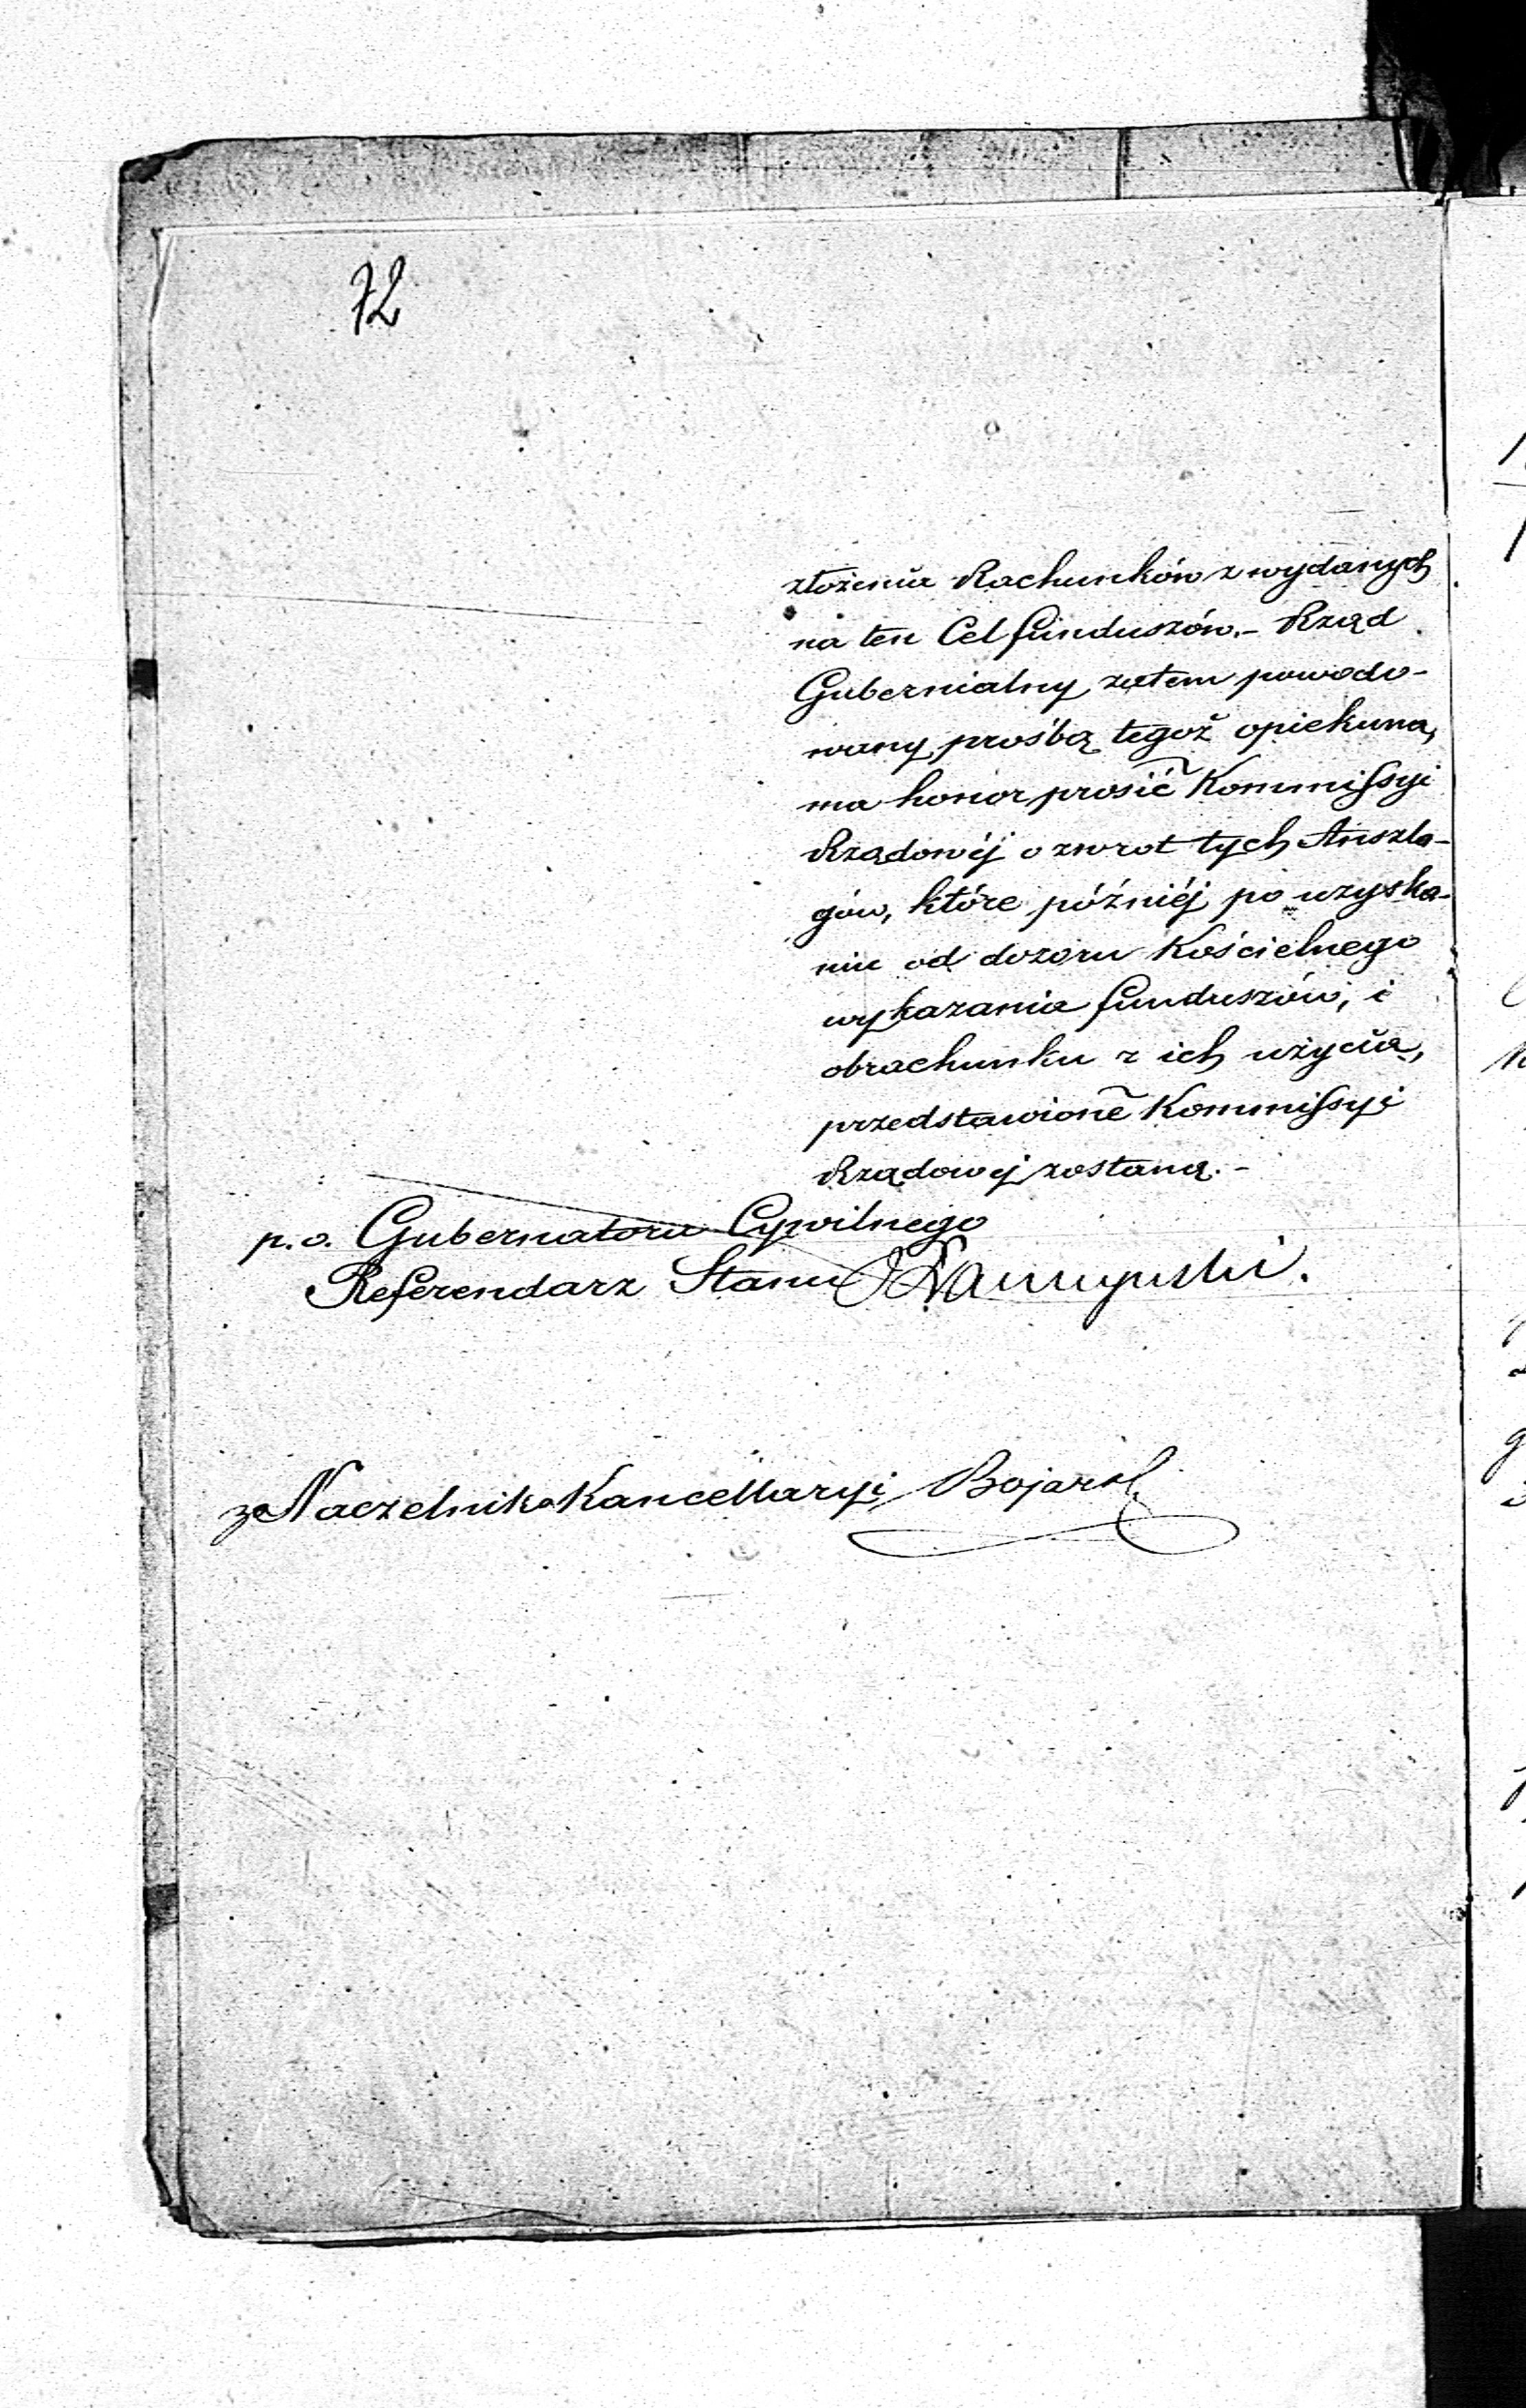 72
złożenia Rachunków z wydanych
na ten Cel funduszów.- Rząd
Gubernialny zatem powodo-
wany prośbą tegoż opiekuna,
ma honor prosić Kommissyi
Rządowéj o zwrot tych Anszla-
gów, które późniéj po uzyska-
niu od dozoru Kościelnego
wykazania funduszów, i
obrachunku z ich użycia,
przedstawione Kommissyi
Rządowej zostaną.-
p.o. Gubernatora Cywilnego
Referendarz Stanu
za Naczelnika Kancellaryi Bojarsk